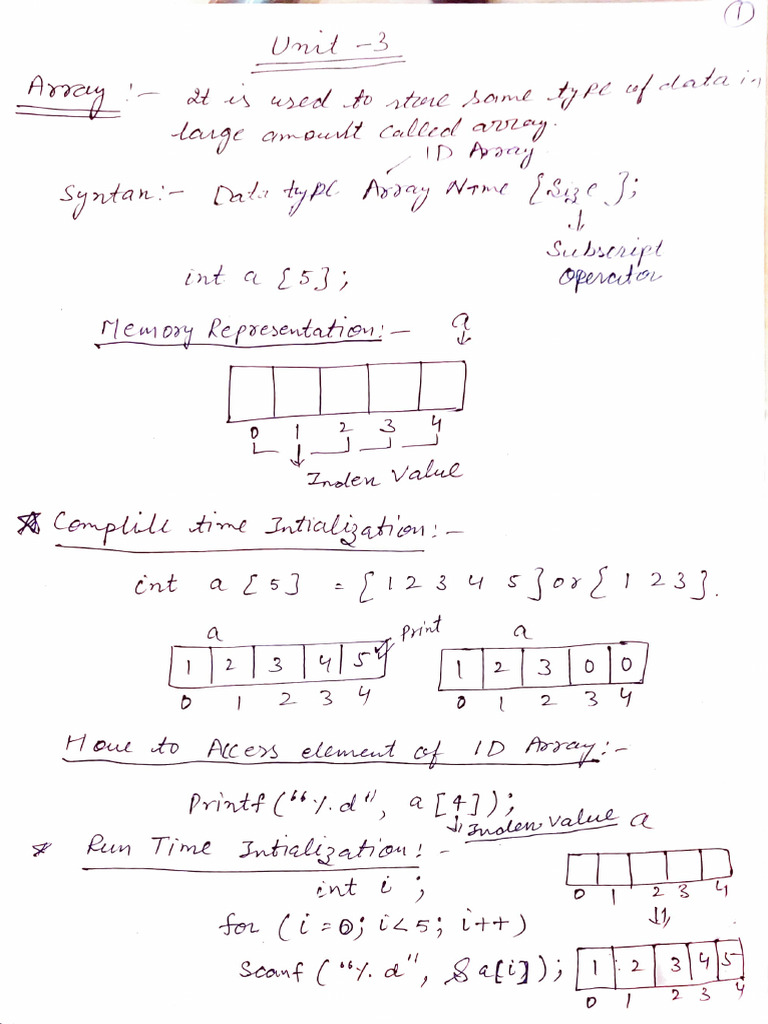 1
Unit - 3
Array :- It is used to store same type of data in
large amount called array.
1D Array
Syntan :- Data type Array Name [Size];
Subscript
Operator
int a [5];
Memory Representation :- a
0 1 2 3 4
Inden Value
* Complile time Intialization :-
int a [5] = {1 2 3 4 5} or {1 2 3}.
a Print a
1 2 3 4 5 1 2 3 0 0
0 1 2 3 4 0 1 2 3 4
Houe to Access element of 1D Array :-
Printf ("%.d", a [4]);
Inden value a
* Run Time Intialization :-
0 1 2 3 4
int i ;
for (i = 0; i < 5; i++)
Scanf ("%.d", &a[i]); 1 2 3 4 5
0 1 2 3 4